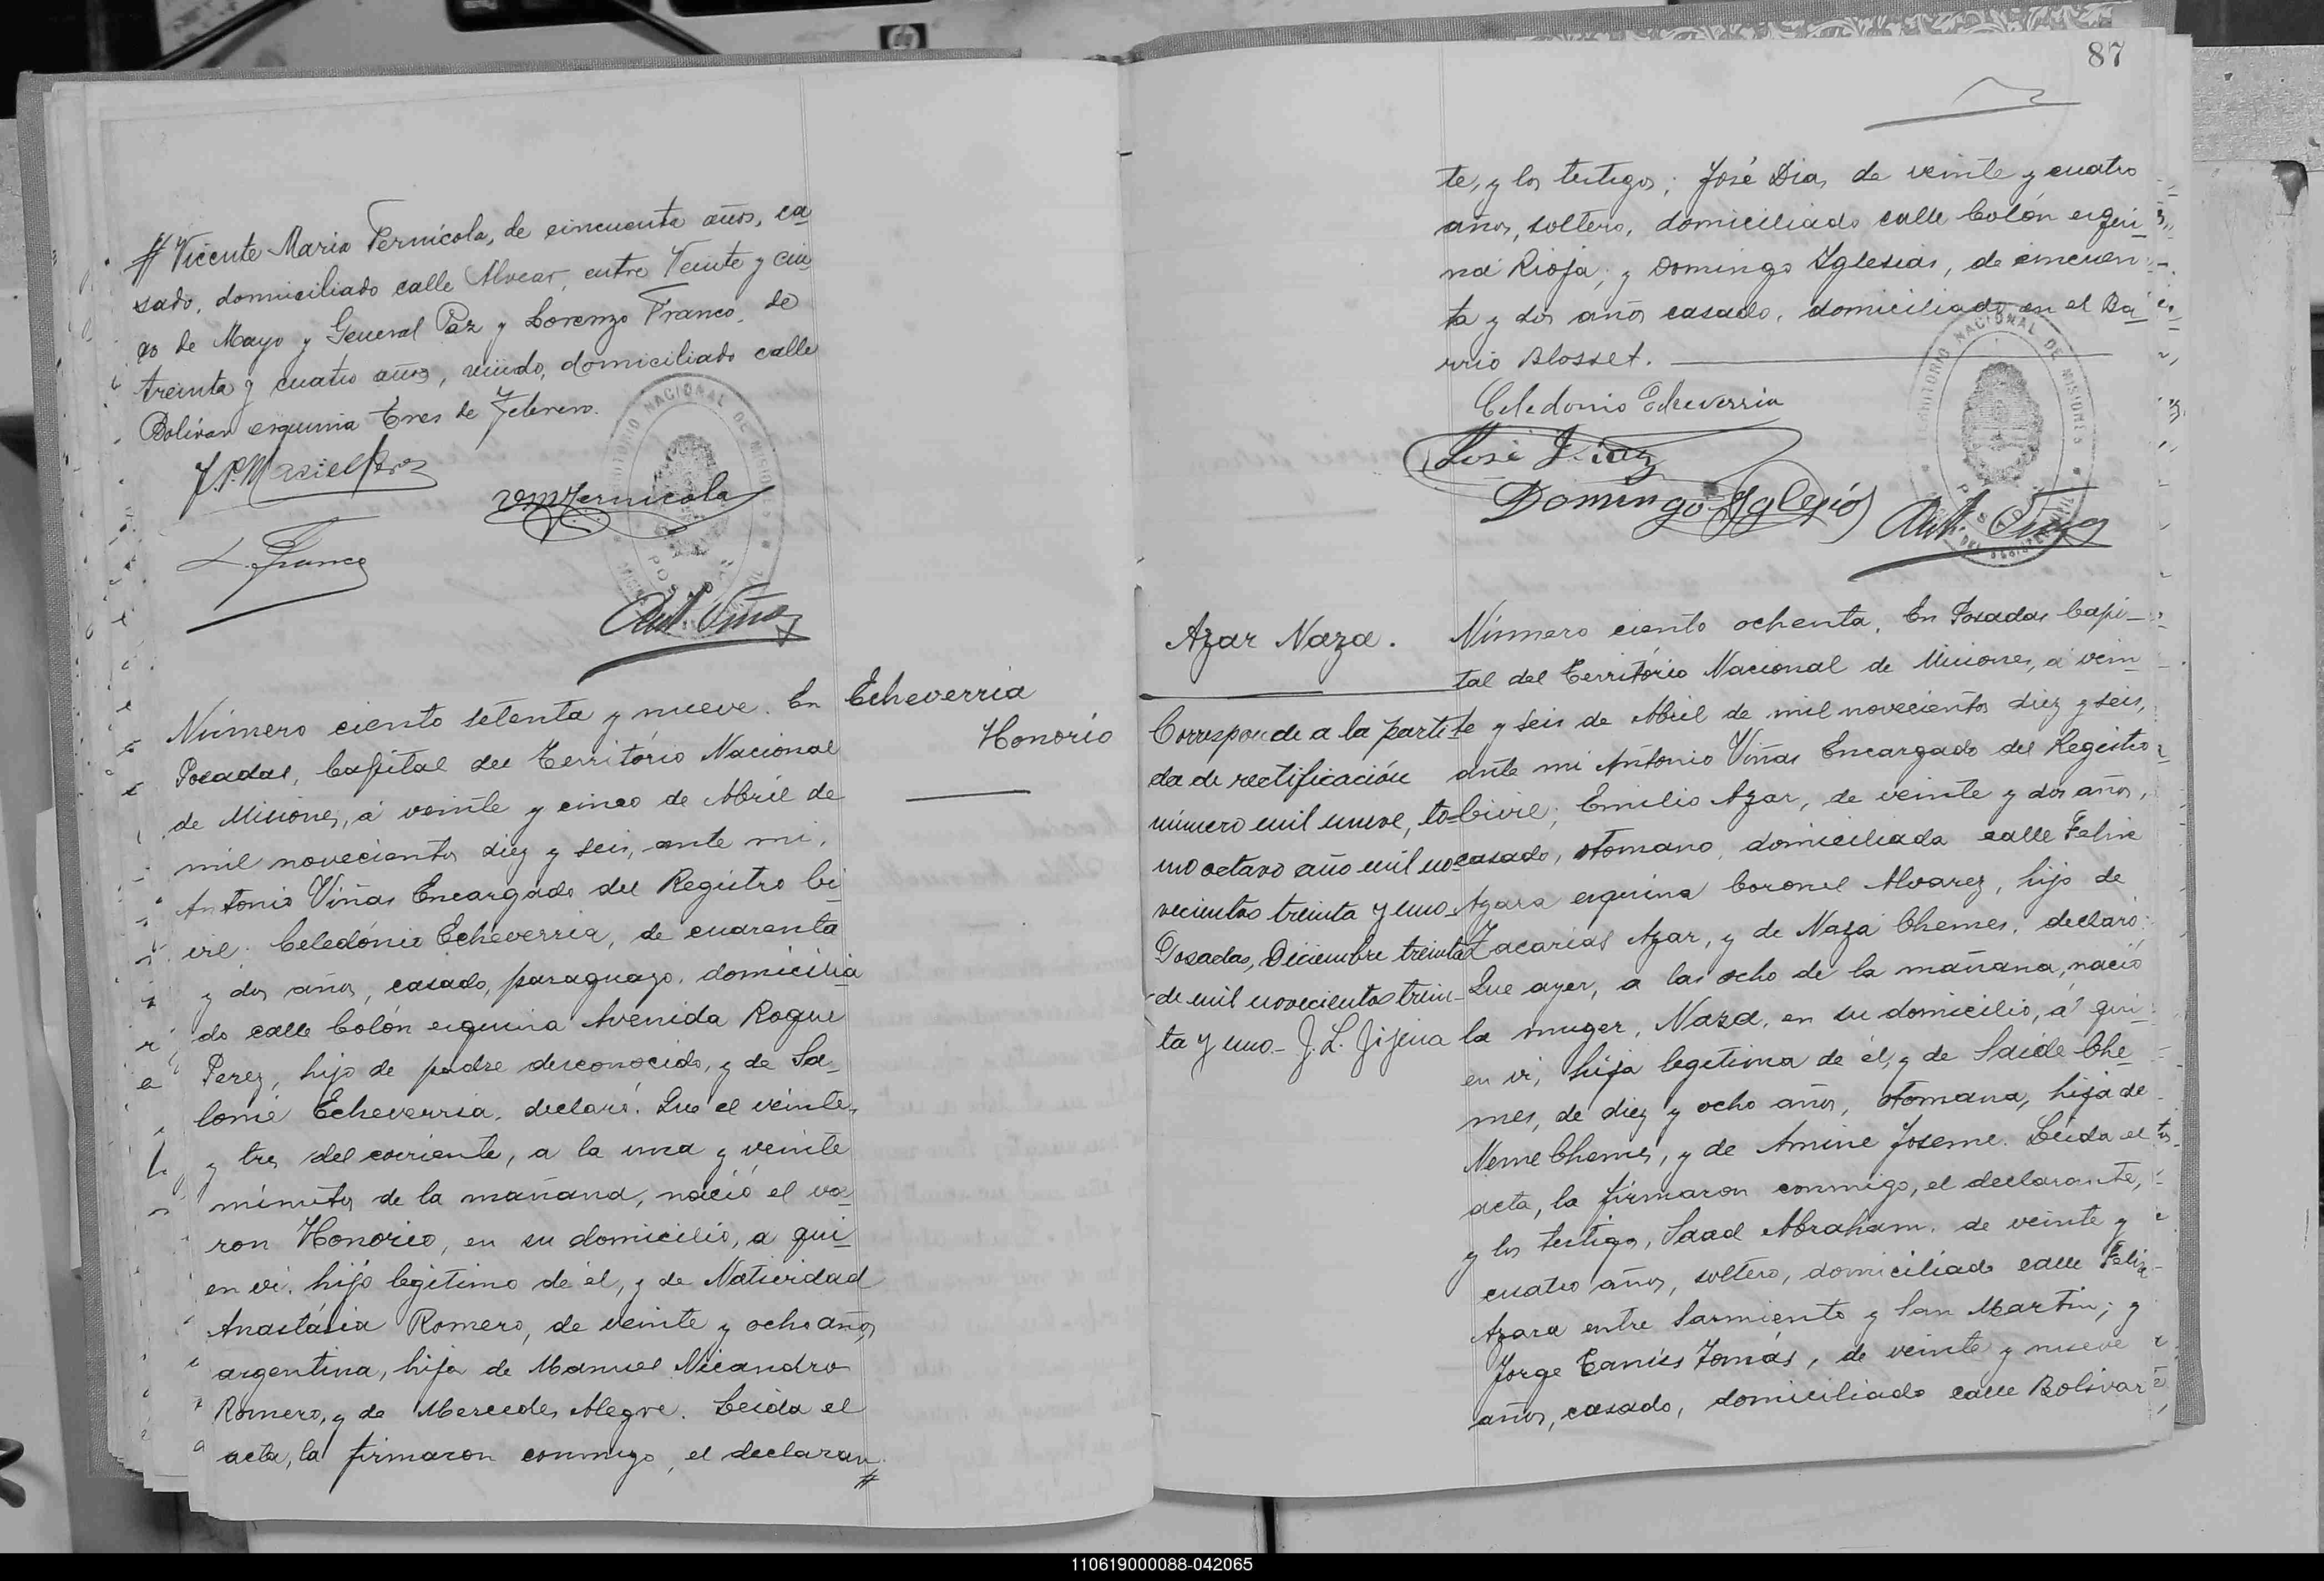 # Vicente Maria Pernícola, de cincuenta años, ca
sado, domiciliado calle Alvear, entre Veinte y cin
co de Mayo y General Paz y Lorenzo Franco, de
treinta y cuatro años, viudo, domiciliado calle
Bolívar esquina Tres de Febrero.
L. Franco
Ant. Viñas
Número ciento setenta y nueve. En
Posadas, Capital del Território Nacional
de Misiones, á veinte y cinco de Abril de
mil novecientos diez y seis, ante mi,
Antonio Viñas Encargado del Registro Ci
vil: Celedónio Echeverria, de cuarenta
y dos años, casado, paraguayo, domicilia
do calle Colón esquina Avenida Roque
Perez, hijo de padre desconocido, y de Sa_
lomé Echeverria, declaró: Que el veinte
y tres del corriente, a la una y veinte
minutos de la mañana, nació el va_
ron Honorio, en su domicilio, a qui_
en vi, hijo legitimo de él, y de Natividad
Anastásia Romero, de veinte y ocho años
argentina, hija de Manuel Nicandro
Romero, y de Mercedes Alegre. Leida el
acta, la firmaron conmigo, el declaran
#
Echeverria
Honorio
87
te, y los testigos; José Dias, de veinte y cuatro
años, soltero, domiciliado calle Colón esqui_
na Rioja; y Domingo Yglesias, de cincuen
ta y dos años casado, domiciliado en el Ba_
rrio Blosset.
Celedonio Echeverria
José Diaz
Domingo Yglesias
Ant. Viñas
TERRITORIO NACIONAL DE MISIONES
POSADAS
Azar Naza.
Corresponde a la parti
da de rectificación
número mil nueve, to-
mo octavo año mil no-
vecientos treinta y uno-
Posadas, Diciembre treinta
de mil novecientos trein-
ta y uno- J. L. Jijena
Número ciento ochenta. En Posadas Capi_
tal del Território Nacional de Misiones, á vein
te y seis de Abril de mil novecientos diez y seis,
ante mi Antonio Viñas Encargado del Registro
Civil; Emilio Azar, de veinte y dos años,
casado, otomano, domiciliada calle Felix
Azara esquina Coronel Alvarez, hijo de
Zacarias Azar, y de Naza Chemes, declaró:
Que ayer, a las ocho de la mañana, nació
la muger, Naza, en su domicilio, á qui_
en vi, hija legitima de él, y de Saide Che
mes, de diez y ocho años, otomana, hija de
Neme Chemes, y de Amine Joseme. Leida el
acta, la firmaron conmigo, el declarante,
y los testigos, Saad Abraham, de veinte y
cuatro años, soltero, domiciliado calle Felix
Azara entre Sarmiento y San Martin; y
Jorge Tomás, de veinte y nueve
años, casado, domiciliado calle Bolivar
110619000088-042065